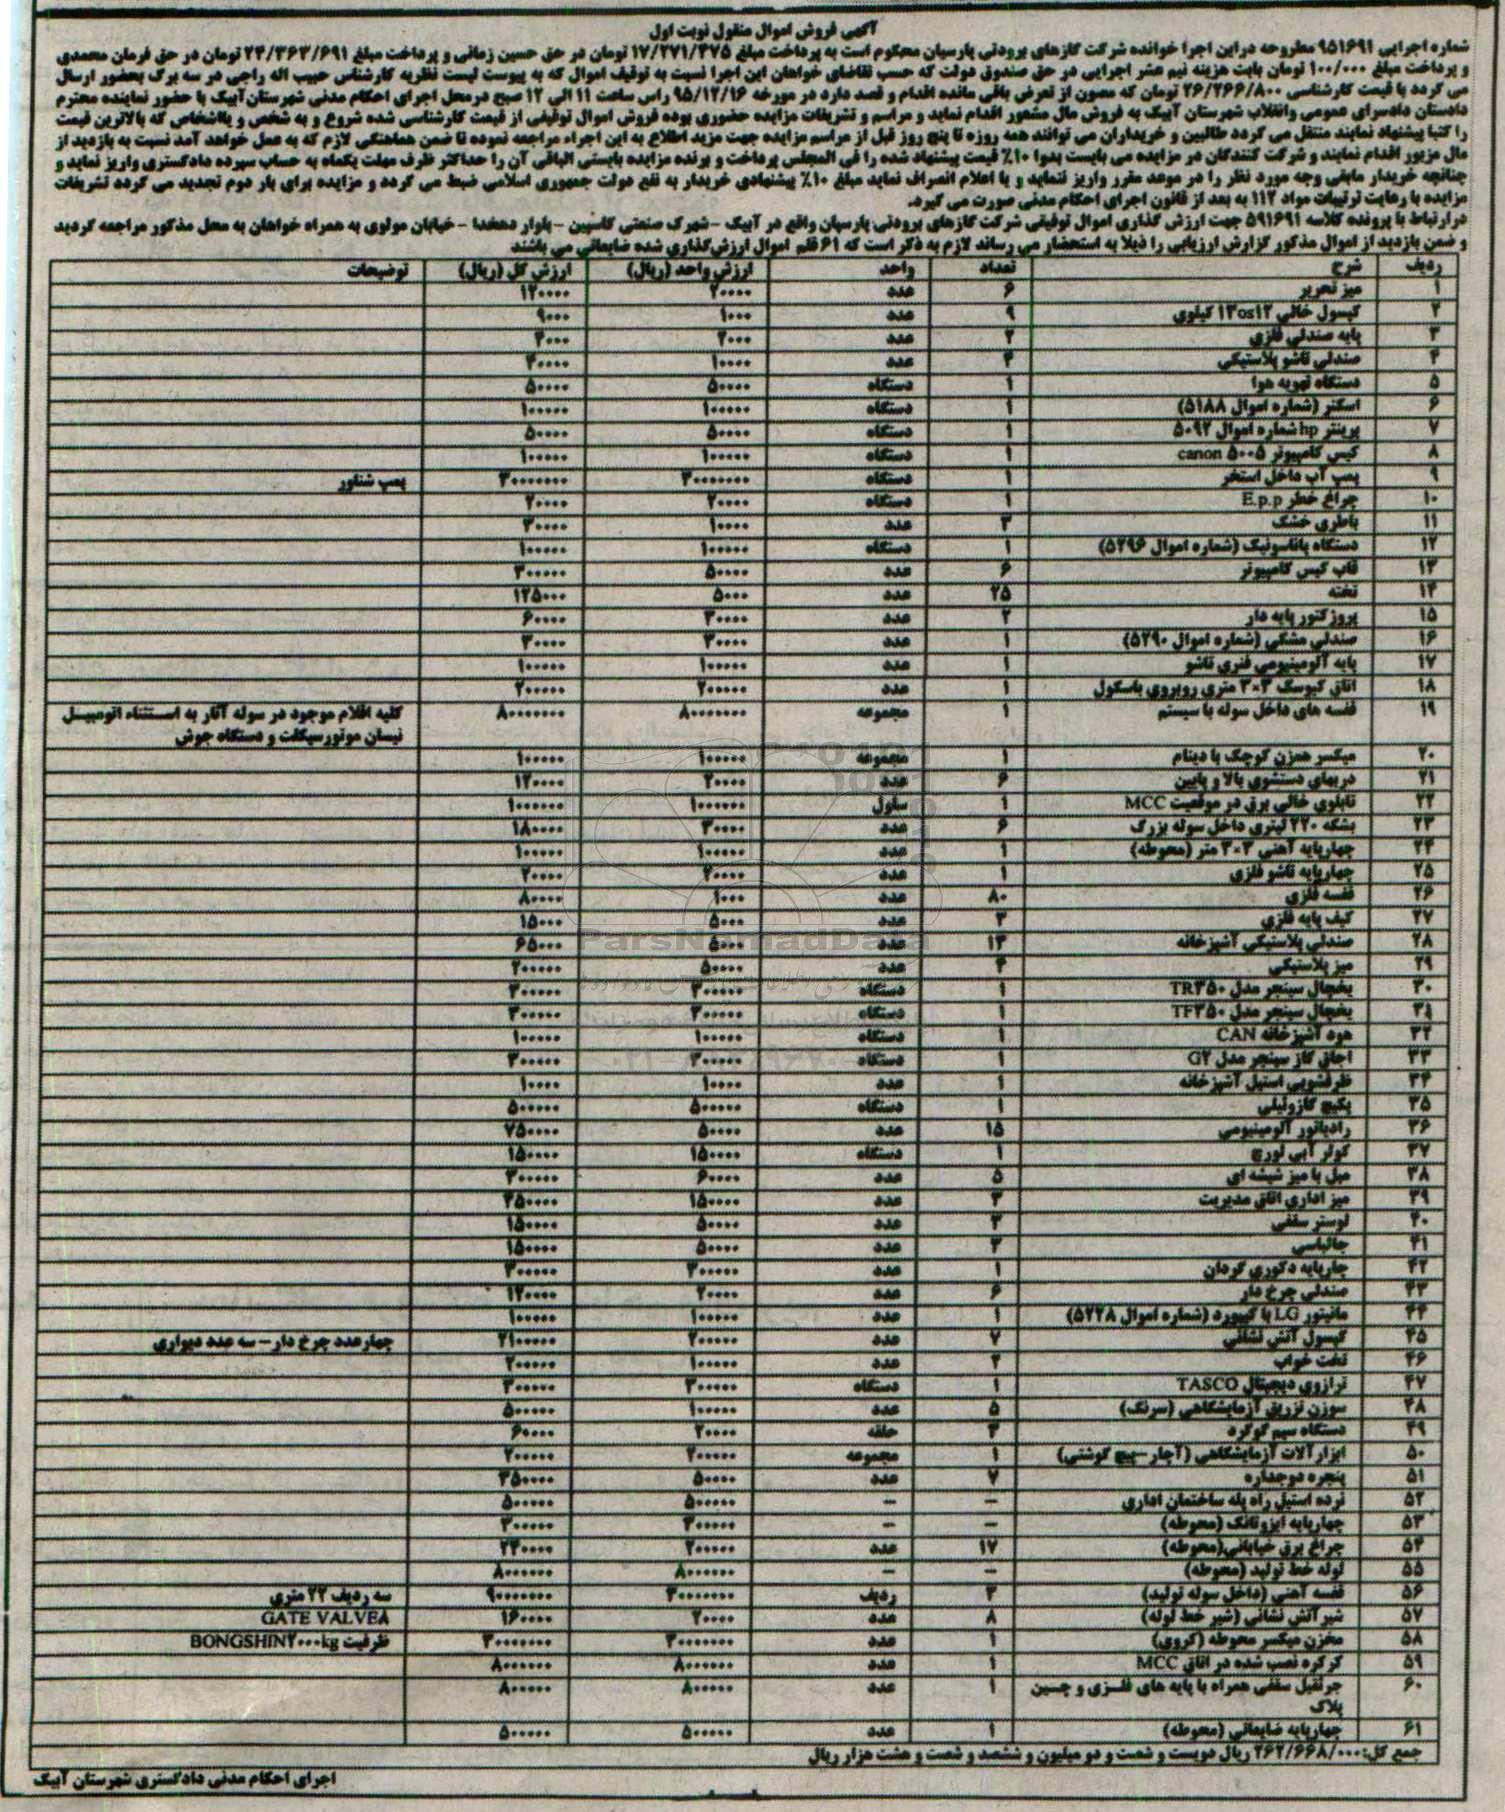 آگهی فروش اموال منقول نوبت اول
شماره اجرایی ۹۵۱۶۹۱ مطروحه در این اجرا خوانده شرکت گازهای برودتی پارسیان محکوم است به پرداخت مبلغ ۱۷/۲۷۱/۳۷۵ تومان در حق حسین زمانی و پرداخت مبلغ ۲۴/۳۶۳/۶۹۱ تومان در حق فرمان محمدی
و پرداخت مبلغ ۱۰۰/۰۰۰ تومان بابت هزینه نیم عشر اجرایی در حق صندوق دولت که حسب تقاضای خواهان این اجرا نسبت به توقیف اموال که به پیوست لیست نظریه کارشناس حبیب اله راجی در سه برگ بحضور ارسال
می گردد با قیمت کارشناسی ۲۶/۲۶۶/۸۰۰ تومان که مصون از تعرض باقی مانده اقدام و قصد دارد در مورخه ۹۵/۱۲/۱۶ راس ساعت ۱۱ الی ۱۲ صبح درمحل اجرای احکام مدنی شهرستان آبیک با حضور نماینده محترم
دادستان دادسرای عمومی وانقلاب شهرستان آبیک به فروش مال مشعور اقدام نماید و مراسم و تشریفات مزایده حضوری بوده فروش اموال توقیفی از قیمت کارشناسی شده شروع و به شخص و یااشخاص که بالاترین قیمت
را کتبا پیشنهاد نمایند منتقل می گردد طالبین و خریداران می توانند همه روزه تا پنج روز قبل از مراسم مزایده جهت مزید اطلاع به این اجراء مراجعه نموده تا ضمن هماهنگی لازم که به عمل خواهد آمد نسبت به بازدید از
مال مزبور اقدام نمایند و شرکت کنندگان در مزایده می بایست بدوا ۱۰٪ قیمت پیشنهاد شده را فی المجلس پرداخت و برنده مزایده بایستی الباقی آن را حداکثر ظرف مهلت یکماه به حساب سپرده دادگستری واریز نماید و
چنانچه خریدار مابقی وجه مورد نظر را در موعد مقرر واریز ننماید و یا اعلام انصراف نماید مبلغ ۱۰٪ پیشنهادی خریدار به نفع دولت جمهوری اسلامی ضبط می گردد و مزایده برای بار دوم تجدید می گردد تشریفات
مزایده با رعایت ترتیبات مواد ۱۱۲ به بعد از قانون اجرای احکام مدنی صورت می گیرد.
درارتباط با پرونده کلاسه ۵۹۱۶۹۱ جهت ارزش گذاری اموال توقیفی شرکت گازهای برودتی پارسیان واقع در آبیک -شهرک صنعتی کاسپین -بلوار دهخدا -خیابان مولوی به همراه خواهان به محل مذکور مراجعه گردید
و ضمن بازدید از اموال مذکور گزارش ارزیابی را ذیلا به استحضار می رساند لازم به ذکر است که ۶۱ قلم اموال ارزش‌گذاری شده ضایعاتی می باشند
ردیف شرح تعداد واحد ارزش واحد (ریال) ارزش کل (ریال) توضیحات
۱ میز تحریر ۶ عدد ۲۰۰۰۰ ۱۲۰۰۰۰
۲ کپسول خالی ۱۲os۱۳ کیلوی ۹ عدد ۱۰۰۰ ۹۰۰۰
۳ پایه صندلی فلزی ۲ عدد ۲۰۰۰ ۴۰۰۰
۴ صندلی تاشو پلاستیکی ۴ عدد ۱۰۰۰۰ ۴۰۰۰۰
۵ دستگاه تهویه هوا ۱ دستگاه ۵۰۰۰۰ ۵۰۰۰۰
۶ اسکنر (شماره اموال ۵۱۸۸) ۱ دستگاه ۱۰۰۰۰۰ ۱۰۰۰۰۰
۷ پرینتر hp شماره اموال ۵۰۹۲ ۱ دستگاه ۵۰۰۰۰ ۵۰۰۰۰
۸ کیس کامپیوتر canon ۵۰۰۵ ۱ دستگاه ۱۰۰۰۰۰ ۱۰۰۰۰۰
۹ پمپ آب داخل استخر ۱ دستگاه ۳۰۰۰۰۰۰۰ ۳۰۰۰۰۰۰۰ پمپ شناور
۱۰ چراغ خطر E.p.p ۱ دستگاه ۲۰۰۰۰ ۲۰۰۰۰
۱۱ باطری خشک ۳ عدد ۱۰۰۰۰ ۳۰۰۰۰
۱۲ دستگاه پاناسونیک (شماره اموال ۵۲۹۶) ۱ دستگاه ۱۰۰۰۰۰ ۱۰۰۰۰۰
۱۳ قاب کیس کامپیوتر ۶ عدد ۵۰۰۰۰ ۳۰۰۰۰۰
۱۴ تخته ۲۵ عدد ۵۰۰۰ ۱۲۵۰۰۰
۱۵ پروژکتور پایه دار ۲ عدد ۳۰۰۰۰ ۶۰۰۰۰
۱۶ صندلی مشکی (شماره اموال ۵۲۹۰) ۱ عدد ۳۰۰۰۰ ۳۰۰۰۰
۱۷ پایه آلومینیومی فنری تاشو ۱ عدد ۱۰۰۰۰۰ ۱۰۰۰۰۰
۱۸ اتاق کیوسک ۳×۲ متری روبروی باسکول ۱ عدد ۲۰۰۰۰۰ ۲۰۰۰۰۰
۱۹ قفسه های داخل سوله با سیستم ۱ مجموعه ۸۰۰۰۰۰۰۰ ۸۰۰۰۰۰۰۰ کلیه اقلام موجود در سوله آنار به استثناء اتومبیل
نیسان موتورسیکلت و دستگاه جوش
۲۰ میکسر همزن کوچک با دینام ۱ مجموعه ۱۰۰۰۰۰ ۱۰۰۰۰۰
۲۱ دربهای دستشوی بالا و پایین ۶ عدد ۲۰۰۰۰ ۱۲۰۰۰۰
۲۲ تابلوی خالی برق در موقعیت MCC ۱ سلول ۱۰۰۰۰۰۰ ۱۰۰۰۰۰۰
۲۳ بشکه ۲۲۰ لیتری داخل سوله بزرگ ۶ عدد ۳۰۰۰۰ ۱۸۰۰۰۰
۲۴ چهارپایه آهنی ۳×۲ متر (محوطه) ۱ عدد ۱۰۰۰۰۰ ۱۰۰۰۰۰
۲۵ چهارپایه تاشو فلزی ۱ عدد ۲۰۰۰۰ ۲۰۰۰۰
۲۶ قفسه فلزی ۸۰ عدد ۱۰۰۰ ۸۰۰۰۰
۲۷ کیف پایه فلزی ۳ عدد ۵۰۰۰ ۱۵۰۰۰
۲۸ صندلی پلاستیکی آشپزخانه ۱۳ عدد ۵۰۰۰ ۶۵۰۰۰
۲۹ میز پلاستیکی ۴ عدد ۵۰۰۰۰ ۲۰۰۰۰۰
۳۰ یخچال سینجر مدل TR۳۵۰ ۱ دستگاه ۳۰۰۰۰۰ ۳۰۰۰۰۰
۳۱ یخچال سینجر مدل TF۳۵۰ ۱ دستگاه ۳۰۰۰۰۰ ۳۰۰۰۰۰
۳۲ هود آشپزخانه CAN ۱ دستگاه ۱۰۰۰۰۰ ۱۰۰۰۰۰
۳۳ اجاق گاز سینجر مدل G۲ ۱ دستگاه ۳۰۰۰۰۰ ۳۰۰۰۰۰
۳۴ ظرفشویی استیل آشپزخانه ۱ عدد ۱۰۰۰۰ ۱۰۰۰۰
۳۵ پکیج گازوئیلی ۱ دستگاه ۵۰۰۰۰۰ ۵۰۰۰۰۰
۳۶ رادیاتور آلومینیومی ۱۵ عدد ۵۰۰۰۰ ۷۵۰۰۰۰
۳۷ کولر آبی لورچ ۱ دستگاه ۱۵۰۰۰۰ ۱۵۰۰۰۰
۳۸ مبل با میز شیشه ای ۵ عدد ۶۰۰۰۰ ۳۰۰۰۰۰
۳۹ میز اداری اتاق مدیریت ۳ عدد ۱۵۰۰۰۰ ۴۵۰۰۰۰
۴۰ لوستر سقفی ۳ عدد ۵۰۰۰۰ ۱۵۰۰۰۰
۴۱ جالباسی ۳ عدد ۵۰۰۰۰ ۱۵۰۰۰۰
۴۲ چارپایه دکوری گردان ۱ عدد ۳۰۰۰۰۰ ۳۰۰۰۰۰
۴۳ صندلی چرخ دار ۶ عدد ۲۰۰۰۰ ۱۲۰۰۰۰
۴۴ مانیتور LG با کیبورد (شماره اموال ۵۲۲۸) ۱ عدد ۱۰۰۰۰۰ ۱۰۰۰۰۰
۴۵ کپسول آتش نشانی ۷ عدد ۳۰۰۰۰۰ ۲۱۰۰۰۰۰ چهارعدد چرخ دار- سه عدد دیواری
۴۶ تخت خواب ۲ عدد ۱۰۰۰۰۰ ۲۰۰۰۰۰
۴۷ ترازوی دیجیتال TASCO ۱ دستگاه ۳۰۰۰۰۰ ۳۰۰۰۰۰
۴۸ سوزن تزریق آزمایشگاهی (سرنگ) ۵ عدد ۱۰۰۰۰۰ ۵۰۰۰۰۰
۴۹ دستگاه سیم گوگرد ۳ حلقه ۲۰۰۰۰ ۶۰۰۰۰
۵۰ ابزارآلات آزمایشگاهی (آچار -پیچ گوشتی) ۱ مجموعه ۲۰۰۰۰۰ ۲۰۰۰۰۰
۵۱ پنجره دوجداره ۷ عدد ۵۰۰۰۰ ۳۵۰۰۰۰
۵۲ نرده استیل راه پله ساختمان اداری - - ۵۰۰۰۰۰ ۵۰۰۰۰۰
۵۳ چهارپایه ایزوتانک (محوطه) - - ۳۰۰۰۰۰ ۳۰۰۰۰۰
۵۴ چراغ برق خیابانی(محوطه) ۱۷ عدد ۲۰۰۰۰۰
۵۵ لوله خط تولید (محوطه) - - ۸۰۰۰۰۰۰ ۸۰۰۰۰۰۰
۵۶ قفسه آهنی (داخل سوله تولید) ۳ ردیف ۳۰۰۰۰۰۰۰ ۹۰۰۰۰۰۰۰ سه ردیف ۲۲ متری
۵۷ شیرآتش نشانی (شیر خط لوله) ۸ عدد ۲۰۰۰۰ ۱۶۰۰۰۰ GATE VALVE۸
۵۸ مخزن میکسر محوطه (کروی) ۱ عدد ۳۰۰۰۰۰۰۰ ۳۰۰۰۰۰۰۰ ظرفیت BONGSHIN۲۰۰۰kg
۵۹ کرکره نصب شده در اتاق MCC ۱ عدد ۸۰۰۰۰۰۰ ۸۰۰۰۰۰۰
۶۰ جرثقیل سقفی همراه با پایه های فلزی و چین ۱ عدد ۸۰۰۰۰۰ ۸۰۰۰۰۰
پلاک
۶۱ چهارپایه ضایعاتی (محوطه) ۱ عدد ۵۰۰۰۰۰ ۵۰۰۰۰۰
جمع کل: ۲۶۲/۶۶۸/۰۰۰ ریال دویست و شصت و دو میلیون و ششصد و شصت و هشت هزار ریال
اجرای احکام مدنی دادگستری شهرستان آبیک
ParsNamadData